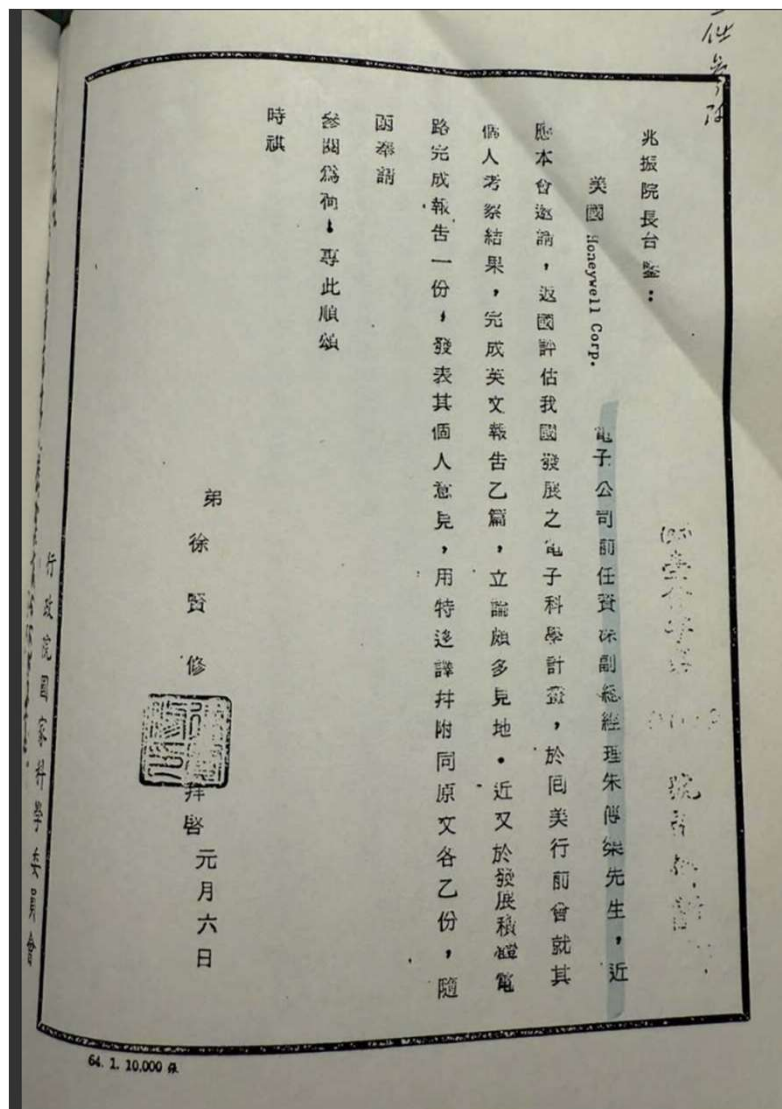 兆振院長台鑒：
美國 Honeywell Corp. 電子公司前任資深副總經理朱傳榘先生，近
應本會邀請，返國評估我國發展之電子科學計畫，於回美行前曾就其
個人考察結果，完成英文報告乙篇，立論頗多見地。近又於發展積體電
路完成報告一份，發表其個人意見，用特迻譯幷附同原文各乙份，隨
函奉請
參閱為荷。專此順頌
時祺
弟 徐賢修 拜啓 元月六日
行政院國家科學委員會
64. 1. 10,000